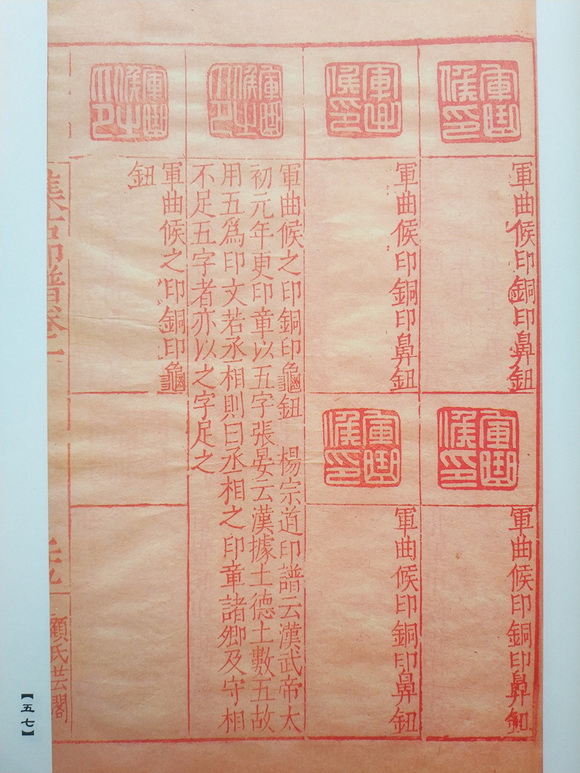 軍曲
候印
軍曲候印銅印鼻鈕
軍曲
候印
軍曲候印銅印鼻鈕
軍曲
候印
軍曲候印銅印鼻鈕
軍曲
候印
軍曲候印銅印鼻鈕
軍曲
候之
印
軍曲候之印銅印龜鈕 楊宗道印譜云漢武帝太
初元年更印章以五字張晏云漢據土德土數五故
用五爲印文若丞相則曰丞相之印章諸卿及守相
不足五字者亦以之字足之
軍曲
候之
印
軍曲候之印銅印龜
鈕
集古印譜卷
顧氏芸閣
【五七】